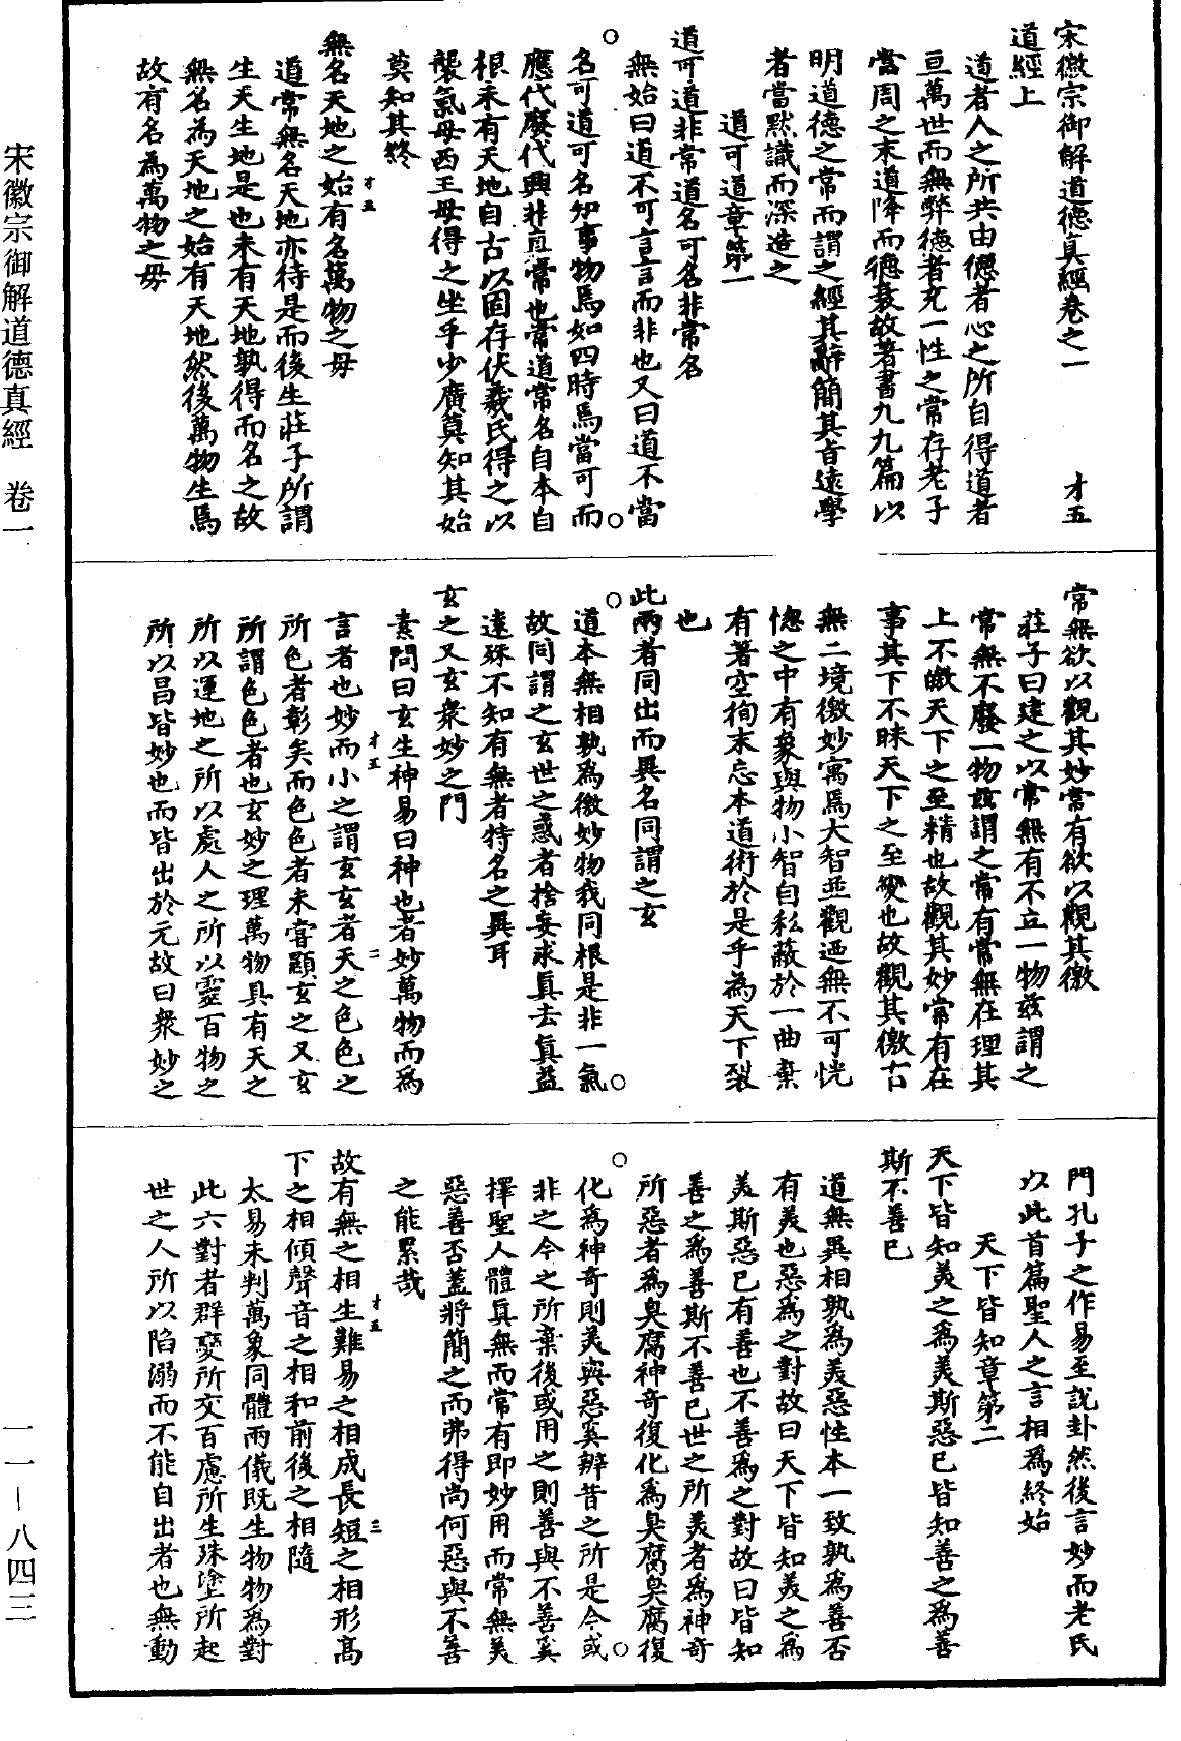 宋徽宗御解道德真經卷之一　　　才五
道經上
道者人之所共由德者心之所自得道者
亘萬世而無弊德者充一性之常存老子
當周之末道降而德衰故著書九九篇以
明道德之常而謂之經其辭簡其旨遠學
者當默識而深造之
道可道章第一
道可道非常道名可名非常名
無始曰道不可言言而非也又曰道不當
名可道可名知事物焉如四時焉當可而
應代廢代興非真常也常道常名自本自
根未有天地自古以固存伏羲氏得之以
襲氣母西王母得之坐乎少廣莫知其始
莫知其終
無名天地之始有名萬物之母
才五
道常無名天地亦待是而後生莊子所謂
生天生地是也未有天地孰得而名之故
無名為天地之始有天地然後萬物生焉
故有名為萬物之母
常無欲以觀其妙常有欲以觀其徼
莊子曰建之以常無有不立一物茲謂之
常無不廢一物茲謂之常有常無在理其
上不皦天下之至精也故觀其妙常有在
事其下不昧天下之至變也故觀其徼古
無二境徼妙寓焉大智並觀迺無不可恍
惚之中有象與物小智自私蔽於一曲棄
有著空徇末忘本道術於是乎為天下裂
也
此兩者同出而異名同謂之玄
道本無相孰為徼妙物我同根是非一氣
故同謂之玄世之惑者捨妄求真去真益
遠殊不知有無者特名之異耳
玄之又玄眾妙之門
素問曰玄生神易曰神也者妙萬物而為
才五　二
言者也妙而小之謂玄玄者天之色色之
所色者彰矣而色色者未嘗顯玄之又玄
所謂色色者也玄妙之理萬物具有天之
所以運地之所以處人之所以靈百物之
所以昌皆妙也而皆出於元故曰眾妙之
門孔子之作易至說卦然後言妙而老氏
以此首篇聖人之言相為終始
天下皆知章第二
天下皆知美之為美斯惡已皆知善之為善
斯不善已
道無異相孰為美惡性本一致孰為善否
有美也惡為之對故曰天下皆知美之為
美斯惡已有善也不善為之對故曰皆知
善之為善斯不善已世之所美者為神奇
所惡者為臭腐神奇復化為臭腐臭腐復
化為神奇則美與惡奚辨昔之所是今或
非之今之所棄後或用之則善與不善奚
擇聖人體真無而常有即妙用而常無美
惡善否蓋將簡之而弗得尚何惡與不善
之能累哉
才五　三
故有無之相生難易之相成長短之相形高
下之相傾聲音之相和前後之相隨
太易未判萬象同體兩儀既生物物為對
此六對者群變所交百慮所生殊塗所起
世之人所以陷溺而不能自出者也無動
宋徽宗御解道德真經　卷一
一一－八四三